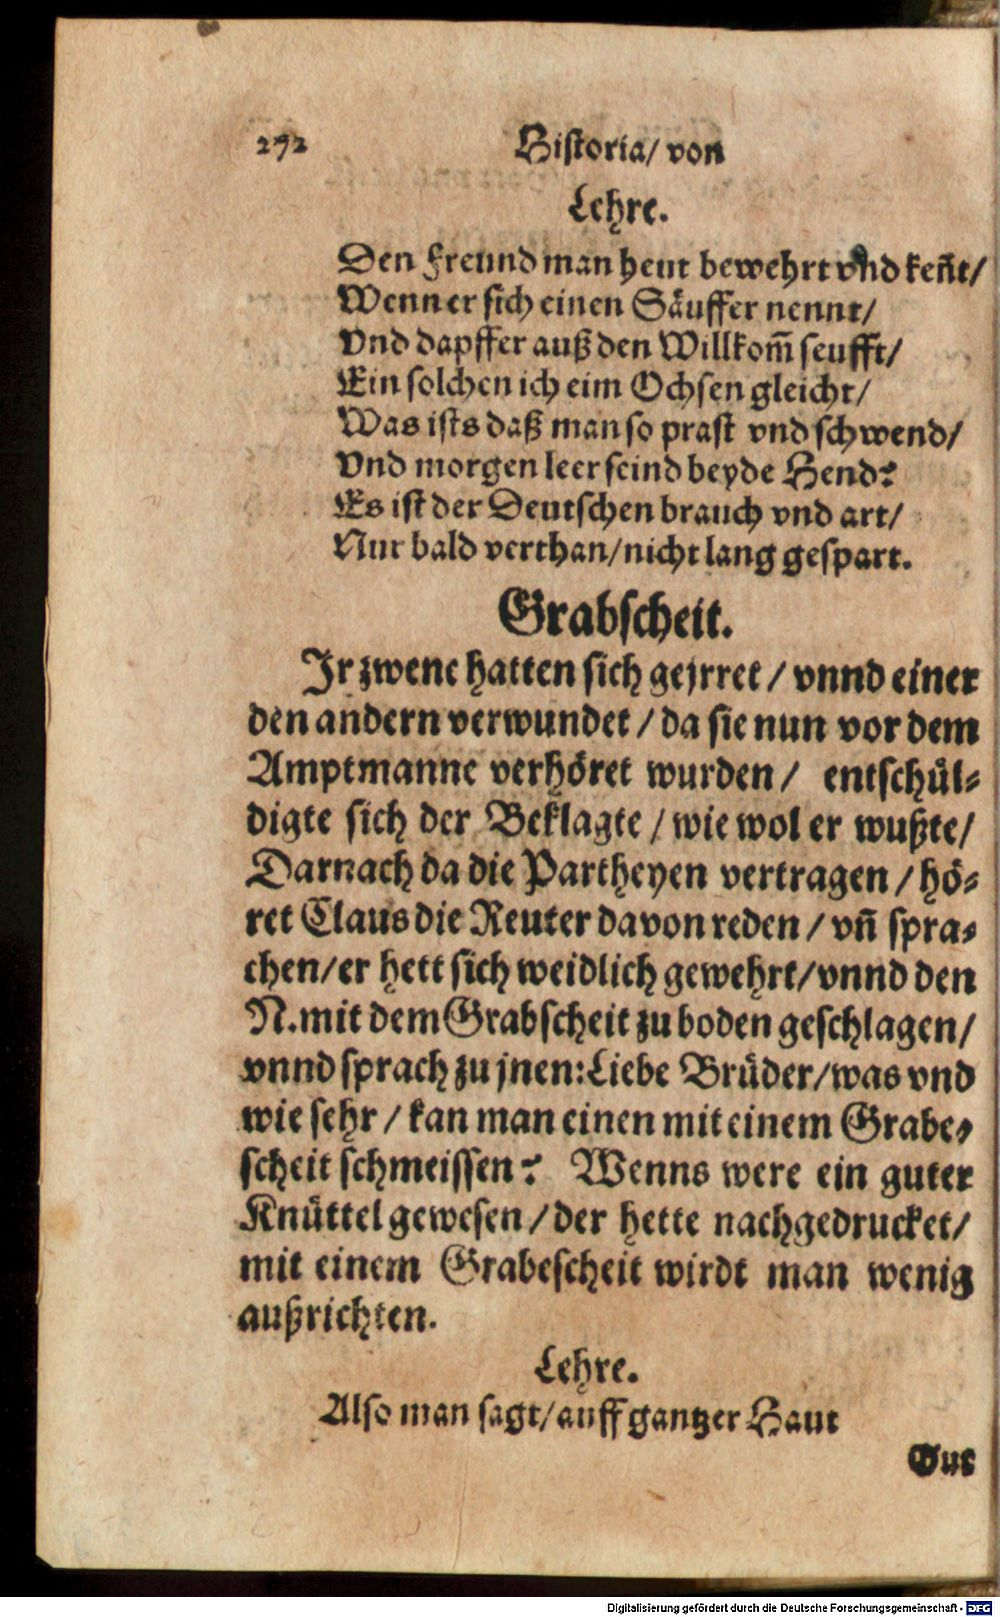 272 Historia/ von
Lehre.
Den Freund man heut bewehrt vnd keñt/
Wenn er sich einen Säuffer nennt/
Vnd dapffer auß den Willkom̃ seufft/
Ein solchen ich eim Ochsen gleicht/
Was ists daß man so prast vnd schwend/
Vnd morgen leer seind beyde Hend?
Es ist der Deutschen brauch vnd art/
Nur bald verthan/nicht lang gespart.
Grabscheit.
Ir zwene hatten sich gejrret / vnnd einer
den andern verwundet / da sie nun vor dem
Amptmanne verhöret wurden / entschül⸗
digte sich der Beklagte / wie wol er wußte/
Darnach da die Partheyen vertragen / hö⸗
ret Claus die Reuter davon reden / vñ spra⸗
chen/er hett sich weidlich gewehrt/vnnd den
N. mit dem Grabscheit zu boden geschlagen/
vnnd sprach zu jnen: Liebe Brüder/was vnd
wie sehr / kan man einen mit einem Grabe⸗
scheit schmeissen? Wenns were ein guter
Knüttel gewesen / der hette nachgedrucket/
mit einem Grabescheit wirdt man wenig
außrichten.
Lehre.
Also man sagt/auff gantzer Haut
Gut
Digitalisierung gefördert durch die Deutsche Forschungsgemeinschaft - DFG